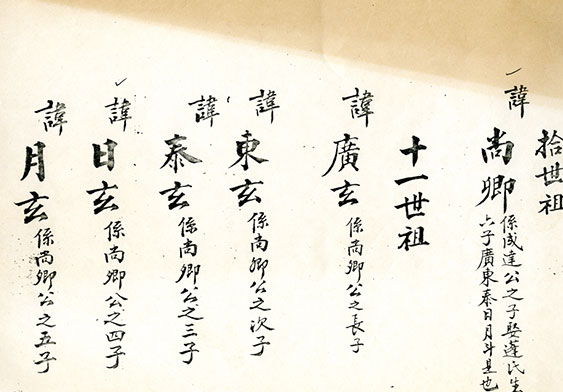 拾世祖
諱尚卿係成達公之子娶蓬氏生
六子廣東泰日月斗是也
十一世祖
諱廣玄係尚卿公之長子
諱東玄係尚卿公之次子
諱泰玄係尚卿公之三子
諱日玄係尚卿公之四子
諱月玄係尚卿公之五子